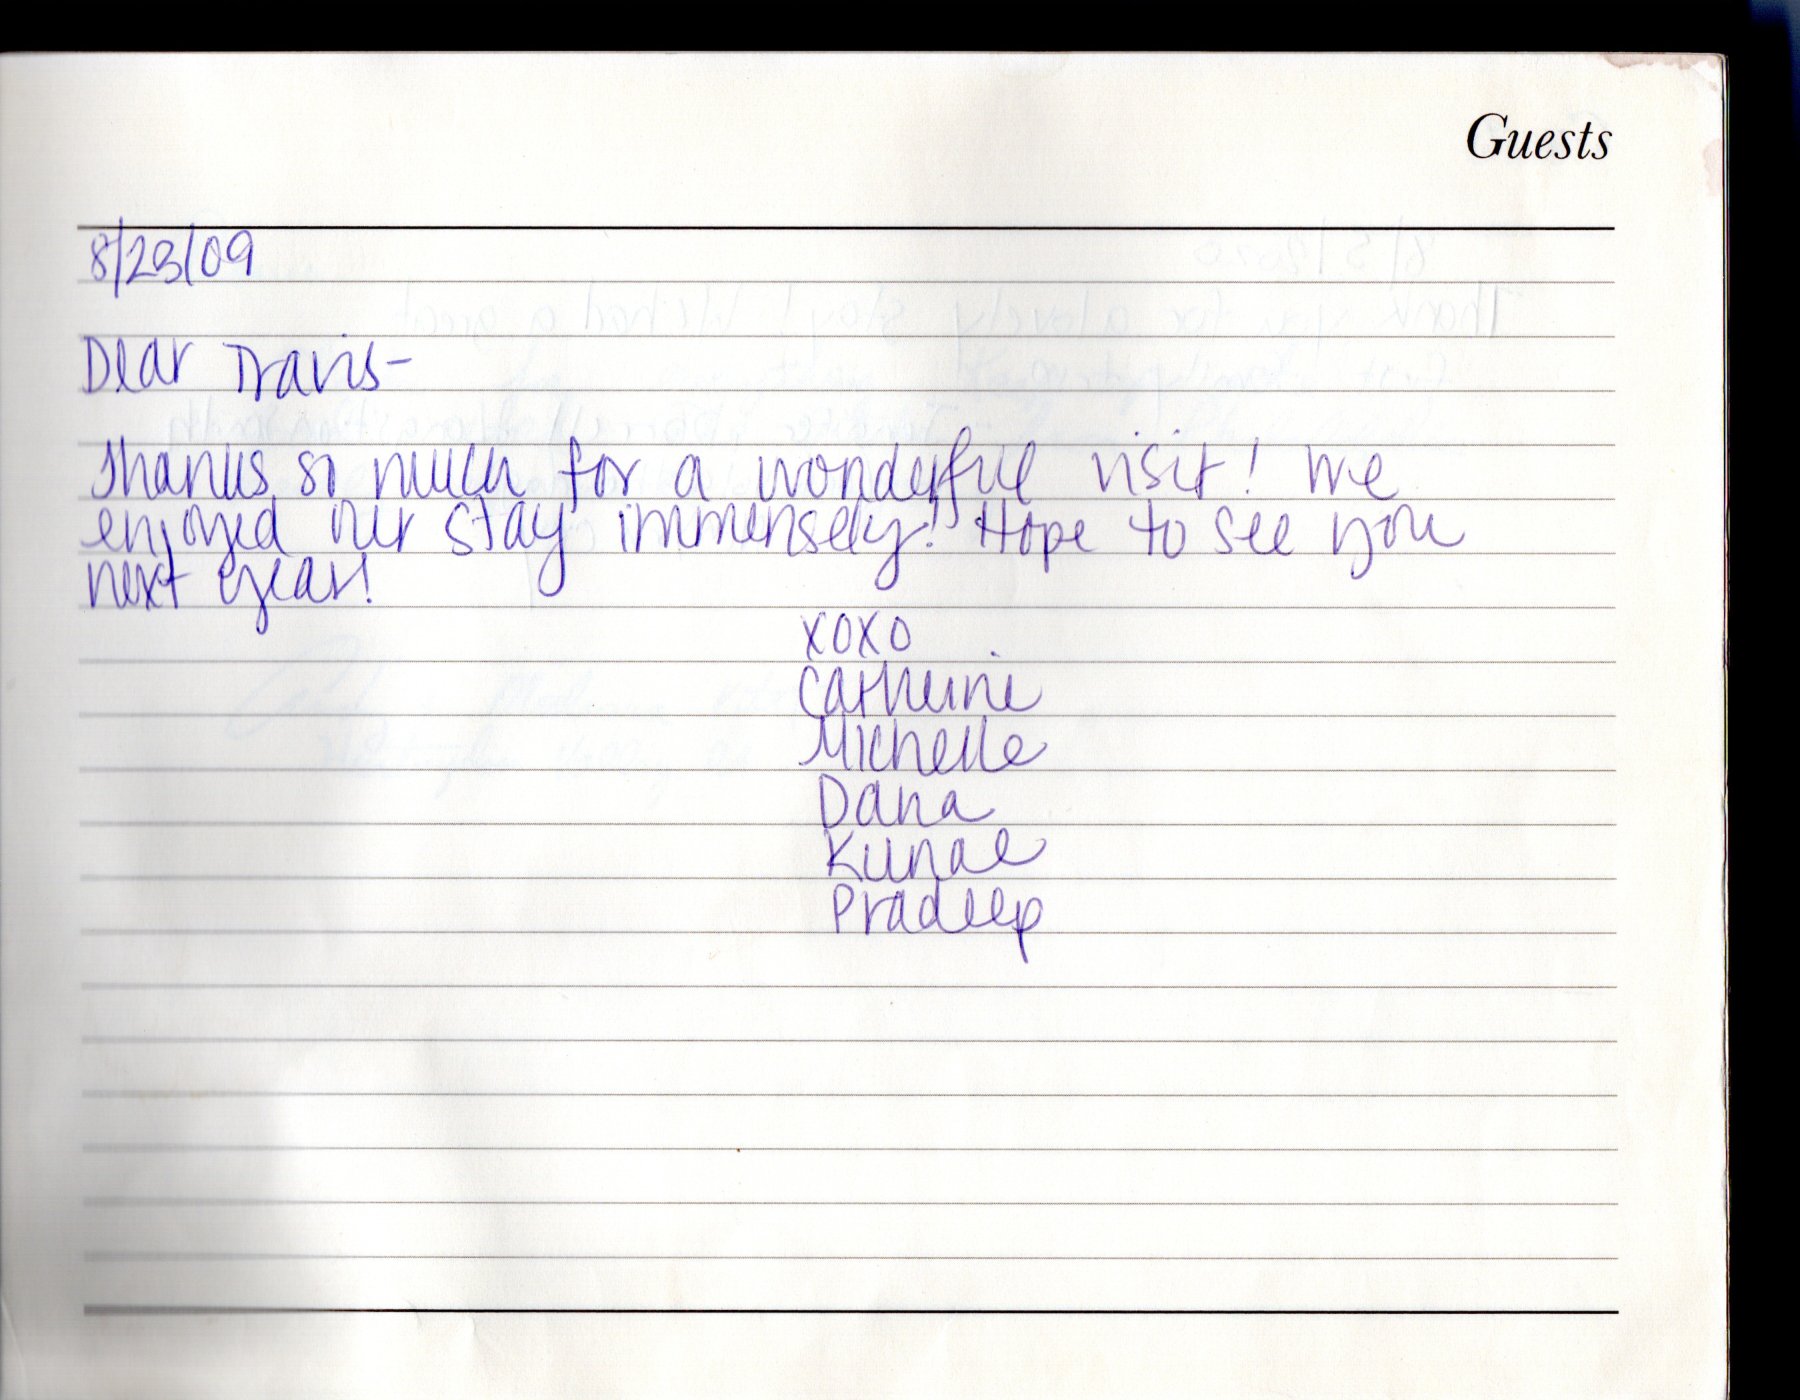 Guests
8/23/09
Dear Travis-
Thanks so much for a wonderful visit! We
enjoyed our stay immensely! Hope to see you
next year!
xoxo
Catherine
Michelle
Dana
Kunal
Pradeep